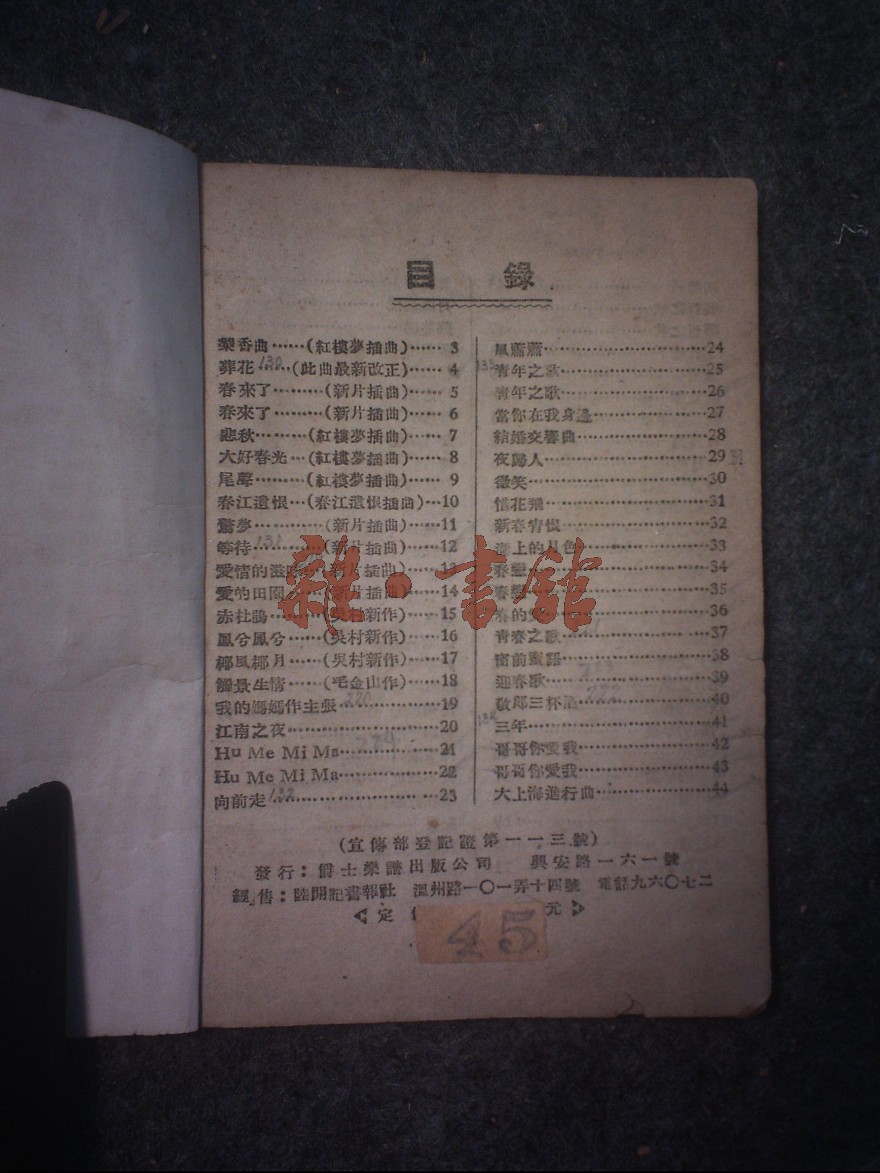 目 錄
梨香曲……(紅樓夢插曲)……3
葬花 130 …(此曲最新改正)……4
春來了………(新片插曲)……5
春來了………(新片插曲)……6
悲秋………(紅樓夢插曲)……7
大好春光…(紅樓夢插曲)……8
尾聲………(紅樓夢插曲)……9
春江遺恨…(春江遺恨插曲)…10
驚夢…………(新片插曲)……11
等待 131 ……(新片插曲)……12
愛情的滋味…(新片插曲)……13
愛的田園……(新片插曲)……14
赤杜鵑………(吳村新作)……15
鳳兮鳳兮……(吳村新作)……16
椰風椰月……(吳村新作)……17
觸景生情……(毛金山作)……18
我的媽媽作主張 220 ……19
江南之夜……………………20
Hu Me Mi Ma………………21
Hu Me Mi Ma………………22
向前走 132 …………………23
風蕭蕭………………………24
青年之歌……………………25
青年之歌……………………26
當你在我身邊………………27
結婚交響曲…………………28
夜歸人………………………29
微笑…………………………30
惜花飛………………………31
新春宵恨……………………32
海上的月色…………………33
春戀…………………………34
春戀…………………………35
春的愛………………………36
青春之歌……………………37
窗前蜜語……………………38
迎春歌………………………39
敬郎三杯酒 222 ……………40
三年…………………………41
哥哥你愛我…………………42
哥哥你愛我…………………43
大上海進行曲………………44
(宣傳部登記證第一一三號)
發行:爵士樂譜出版公司 興安路一六一號
經售:陸開記書報社 溫州路一〇一弄十四號 電話九六〇七二
定 元
45
雜·書館